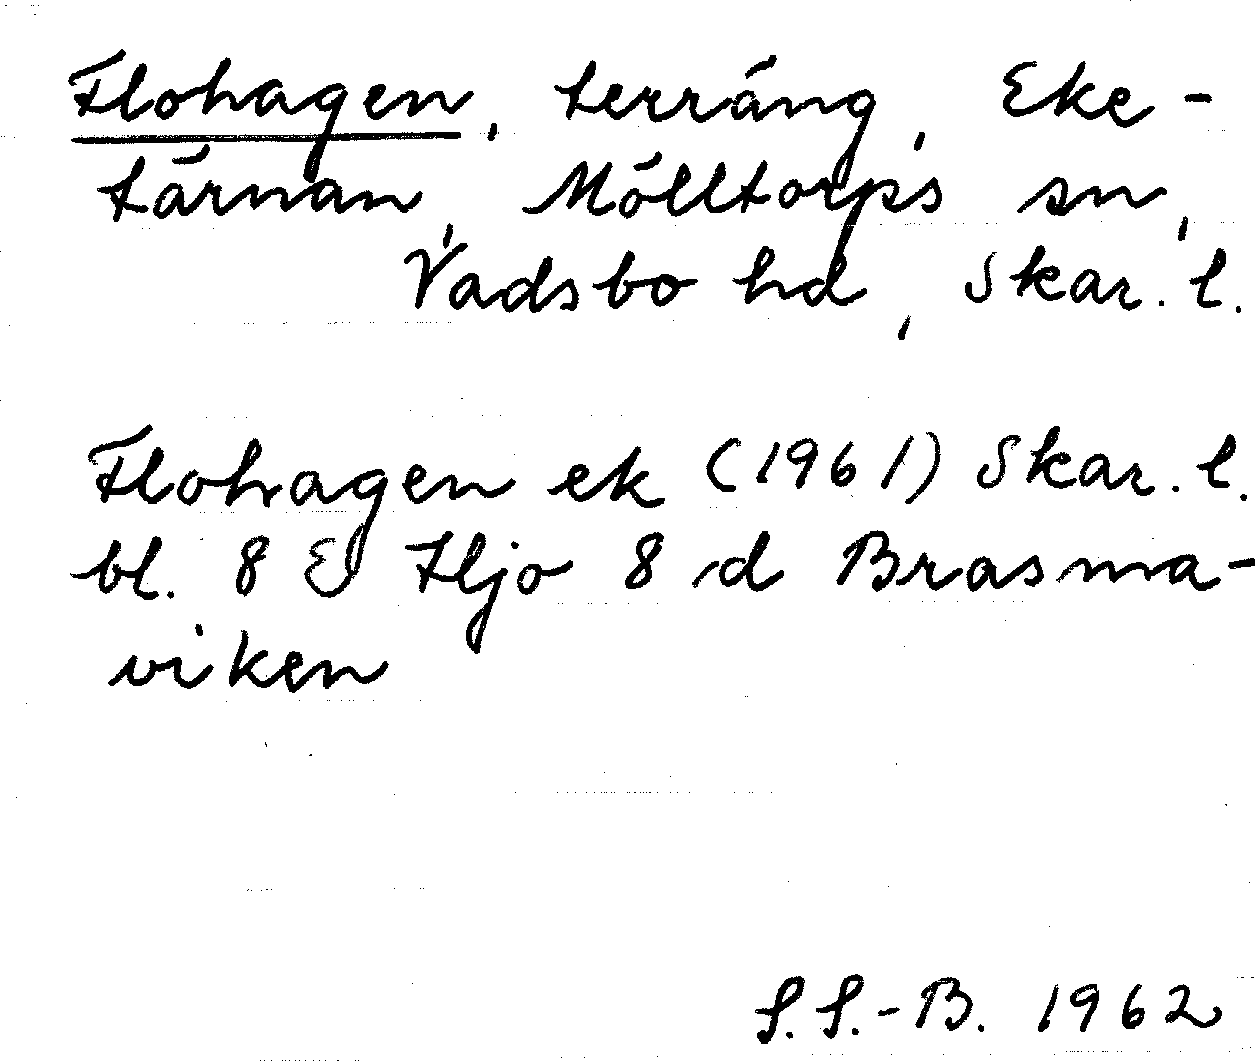 Flohagen, terräng, Eke-
tärnan, Mölltorps sn,
Vadsbo hd, Skar. l.
Flohagen ek (1961) Skar. l.
bl. 8 E Hjo 8 d Brasma-
viken
S. S.-B. 1962